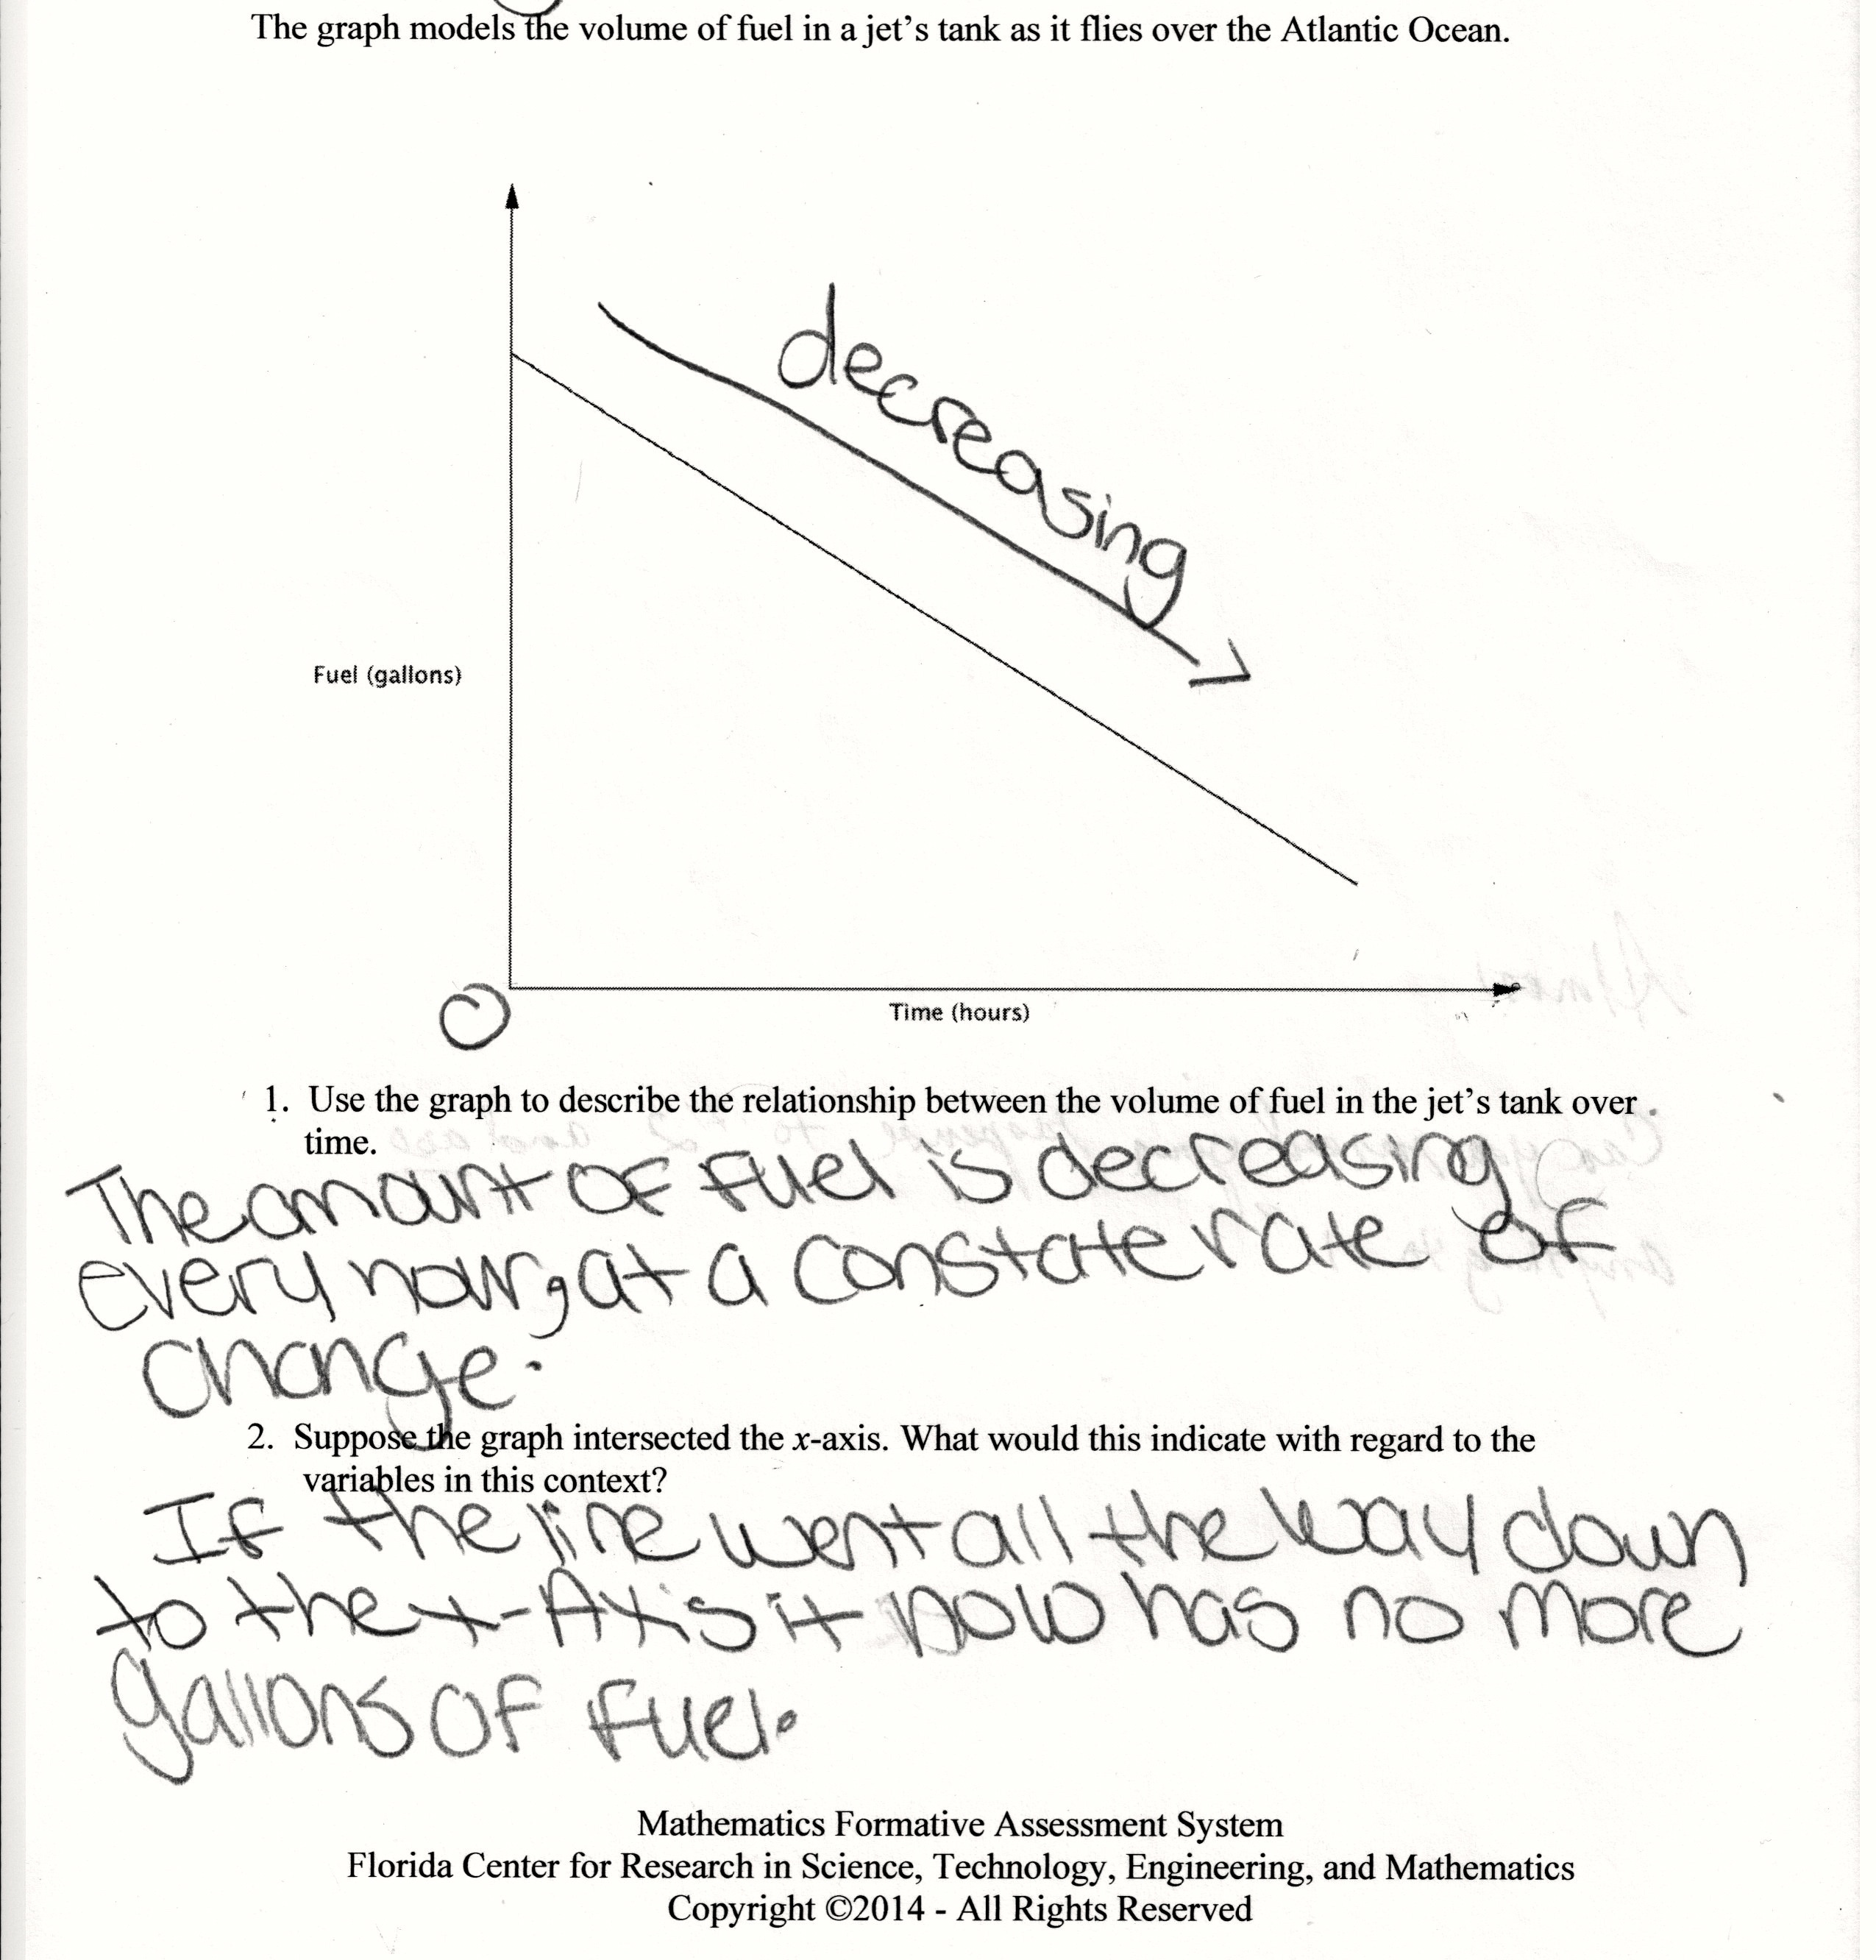 The graph models the volume of fuel in a jet's tank as it flies over the Atlantic Ocean.
decreasing
Fuel (gallons)
O
Time (hours)
1. Use the graph to describe the relationship between the volume of fuel in the jet's tank over
time.
The amount of fuel is decreasing
every hour, at a constate rate of
change.
2. Suppose the graph intersected the x-axis. What would this indicate with regard to the
variables in this context?
If the line went all the way down
to the x-Axis it now has no more
gallons of fuel.
Mathematics Formative Assessment System
Florida Center for Research in Science, Technology, Engineering, and Mathematics
Copyright ©2014 - All Rights Reserved